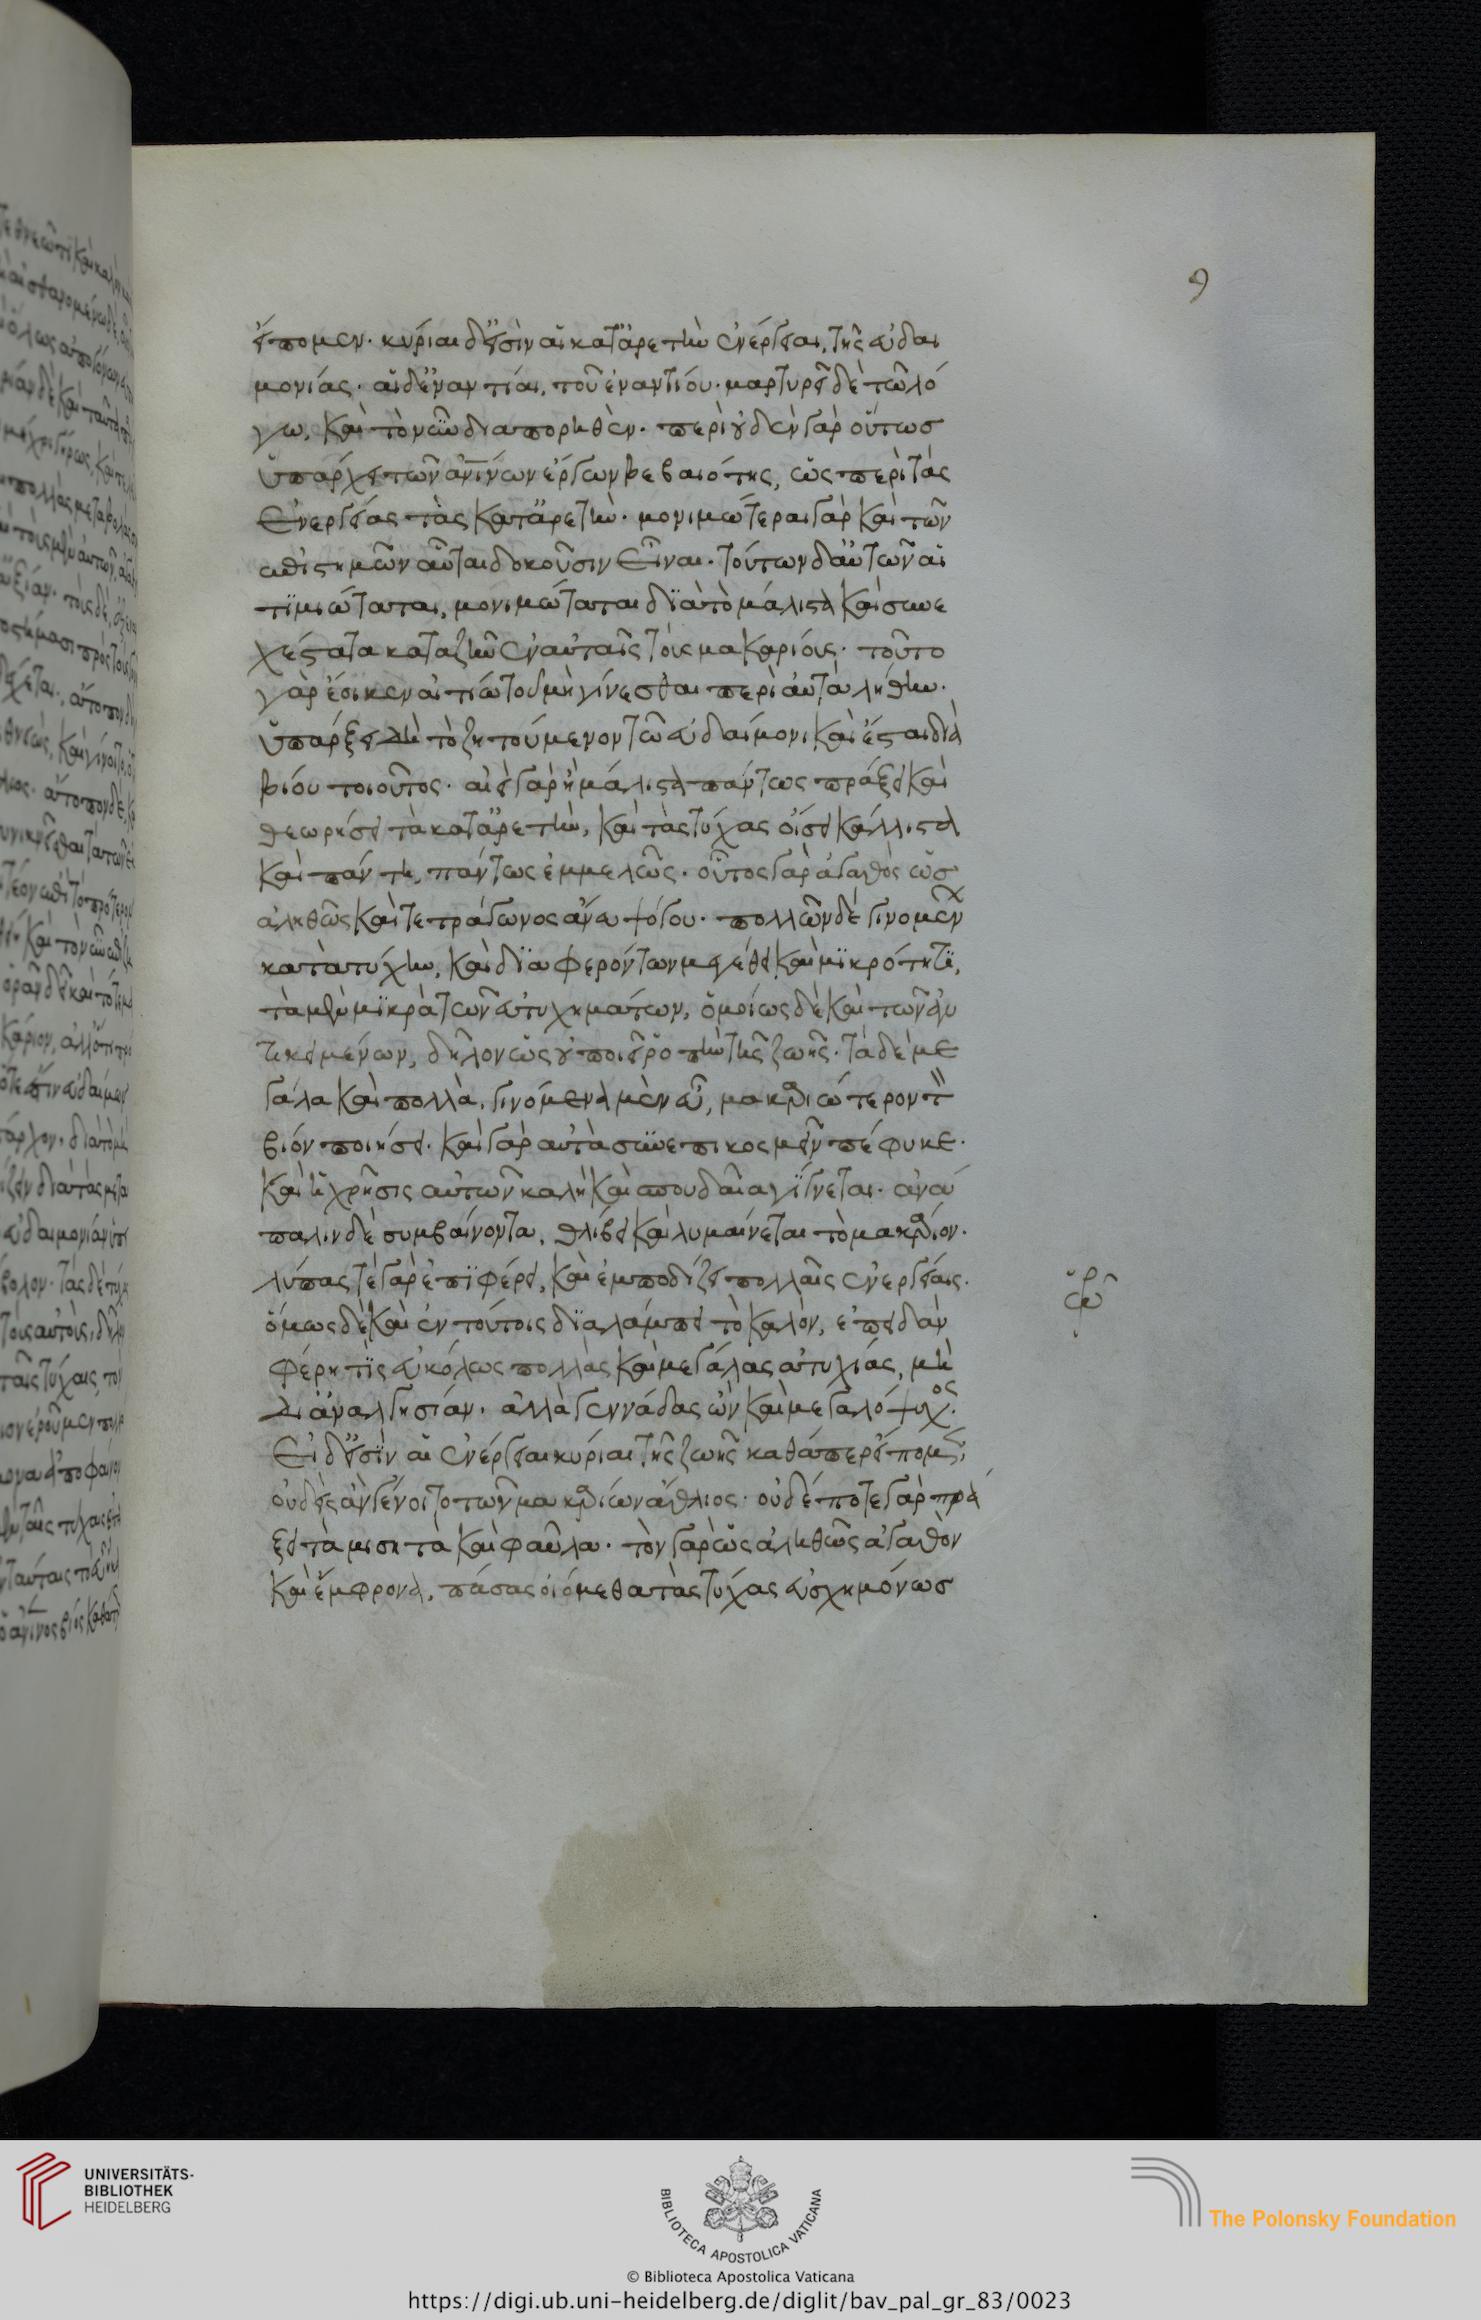 9
εἴπομεν· κύριαι δ' εἰσὶν αἱ κατ' ἀρετὴν ἐνέργειαι, τῆς εὐδαι
μονίας· αἱ δ' ἐναντίαι, τοῦ ἐναντίου· μαρτυρεῖ δὲ τῶ λό
γω, καὶ τὸ νῦν διαπορηθέν· περὶ οὐδὲν γὰρ οὕτως
ὑπάρχει τῶν ἀνίνων ἔργων βεβαιότης, ὡς περὶ τὰς
ἐνεργείας τὰς κατ' ἀρετὴν· μονιμώτεραι γὰρ καὶ τῶν
ἐπιστημῶν αὗται δοκοῦσιν εἶναι· τούτων δ' αὐτῶν αἱ
τιμιώταται, μονιμώταται διὰ τὸ μάλιστα καὶ συνε
χέστατα καταζῆν ἐν αὐταῖς τοὺς μακαρίους· τοῦτο
γὰρ ἔοικεν αἰτίω τοῦ μὴ γίνεσθαι περὶ αὐτὰ λήθην·
ὑπάρξει δὴ τὸ ζητούμενον τῶ εὐδαίμονι καὶ ἔσται διὰ
βίου τοιοῦτος· αἰεὶ γὰρ ἢ μάλιστα πάντως πράξει καὶ
θεωρήσει τὰ κατ' ἀρετὴν, καὶ τὰς τύχας οἴσει κάλλιστα
καὶ πάντη, πάντως ἐμμελῶς· οὗτος γὰρ ἀγαθὸς ὡς
ἀληθῶς καὶ τετράγωνος ἄνευ ψόγου· πολλῶν δὲ γινομένων
κατὰ τύχην, καὶ διαφερόντων μεγέθει καὶ μικρότητι,
τὰ μὲν μικρὰ τῶν εὐτυχημάτων, ὁμοίως δὲ καὶ τῶν ἀν
τικειμένων, δῆλον ὡς οὐ ποιεῖ ῥοπὴν τῆς ζωῆς· τὰ δὲ με
γάλα καὶ πολλὰ, γινόμενα μὲν εὖ, μακαριώτερον τὸν
βίον ποιήσει· καὶ γὰρ αὐτὰ συνεπικοσμεῖν πέφυκε·
καὶ ἡ χρῆσις αὐτῶν καλὴ καὶ σπουδαία γίγνεται· ἀνά
παλιν δὲ συμβαίνοντα, θλίβει καὶ λυμαίνεται τὸ μακάριον·
λύπας τὲ γὰρ ἐπιφέρει, καὶ ἐμποδίζει πολλαῖς ἐνεργείαις·
ὅμως δὲ καὶ ἐν τούτοις διαλάμπει τὸ καλόν, ἐπειδὰν
φέρη τὶς εὐκόλως πολλὰς καὶ μεγάλας ἀτυχίας, μὴ
δι' ἀναλγησίαν· ἀλλὰ γεννάδας ὢν καὶ μεγαλόψυχος.
Εἰ δ' εἰσὶν αἱ ἐνέργειαι κύριαι τῆς ζωῆς καθάπερ εἴπομεν,
οὐδεὶς ἂν γένοιτο τῶν μακαρίων ἄθλιος· οὐδέποτε γὰρ πρά
ξει τὰ μισητὰ καὶ φαῦλα· τὸν γὰρ ὡς ἀληθῶς ἀγαθὸν
καὶ ἔμφρονα, πάσας οἰόμεθα τὰς τύχας εὐσχημόνως
UNIVERSITÄTS-
BIBLIOTHEK
HEIDELBERG
BIBLIOTECA APOSTOLICA VATICANA
The Polonsky Foundation
© Biblioteca Apostolica Vaticana
https://digi.ub.uni-heidelberg.de/diglit/bav_pal_gr_83/0023